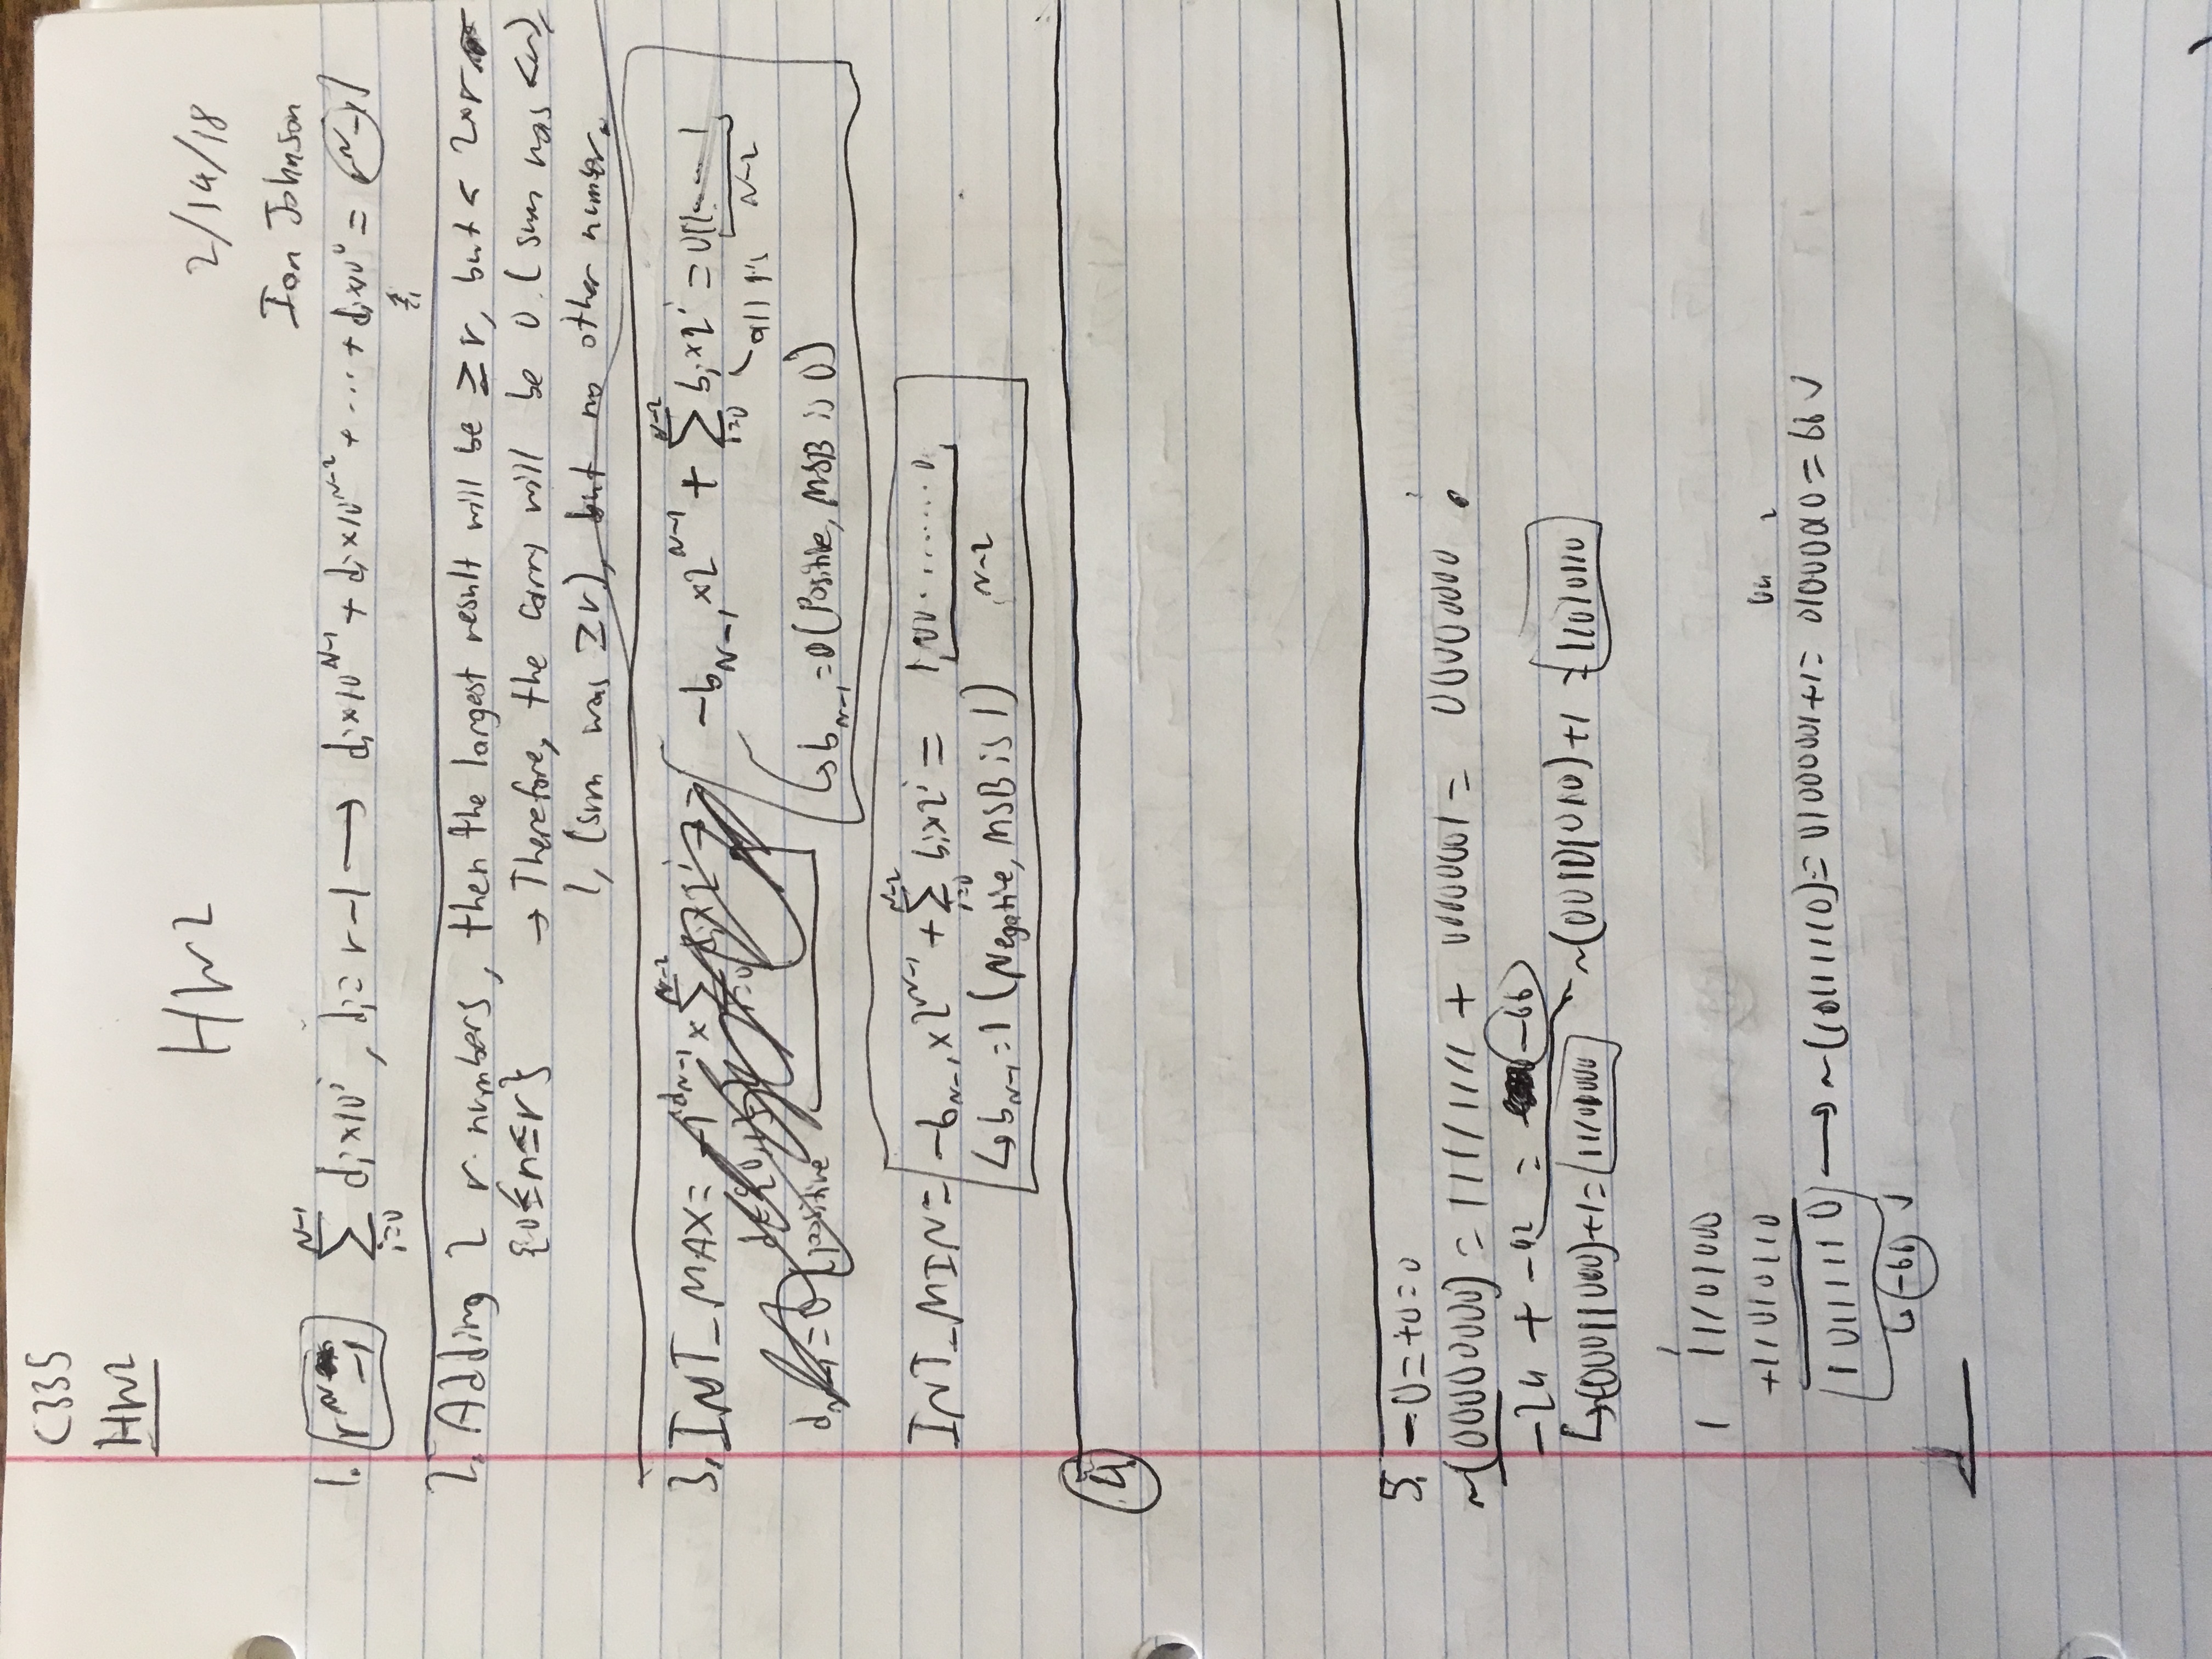 C335
HW2
HW2
2/14/18
Ian Johnson
1. r^N -1   Σ_{i=0}^{N-1} d_i×10^i, d_i = r-1 → d_i×10^{N-1} + d_i×10^{N-2} + ... + d_i×10^0 = r^N-1
2. Adding 2 r numbers, then the largest result will be ≥r, but < 2×r
{0≤n≤r} → Therefore, the carry will be 0 (sum was <r),
1, (sum was ≥r), but no other number.
3. INT_MAX= -b_{N-1}×2^{N-1} + Σ_{i=0}^{N-2} b_i×2^i = 011....1
all 1's N-2
↳b_{N-1}=0 (Positive, MSB is 0)
INT_MIN= -b_{N-1}×2^{N-1} + Σ_{i=0}^{N-2} b_i×2^i = 100.........0
↳b_{N-1}=1 (Negative, MSB is 1) N-2
4.
5. -0=+0=0
~(00000000) = 11111111 + 00000001 = 00000000
-24 + -42 = -66
↳~(00011000)+1= 11101000 ~(00101010)+1 = 11010110
1
1 11101000
+11010110
64 2
10111110 → ~(10111110)= 01000001+1= 01000010 = 66 ✓
↳ -66 ✓